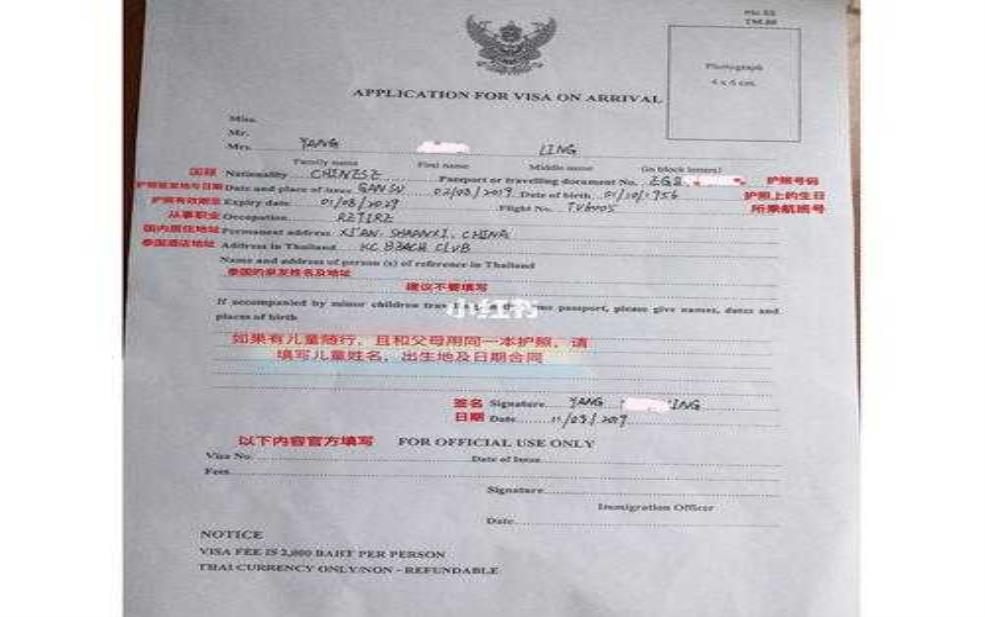 TM.88
Photograph
4 x 6 cm.
APPLICATION FOR VISA ON ARRIVAL
Miss.
Mr.
Mrs. YANG LING
Family name First name Middle name (in block letters)
国籍 Nationality CHINESE Passport or travelling document No. 护照号码
护照签发地与日期 Date and place of issue GANSU 02/08/2019 Date of birth 01/10/1956 护照上的生日
护照有效期至 Expiry date 01/08/2029 Flight No. 所乘航班号
从事职业 Occupation RETIRE
国内居住地址 Permanent address XI'AN, SHAANXI, CHINA
泰国酒店地址 Address in Thailand KC BEACH CLUB
Name and address of person (s) of reference in Thailand
泰国的亲友姓名及地址
建议不要填写
If accompanied by minor children passport, please give names, dates and
小红书
places of birth
如果有儿童随行，且和父母用同一本护照，请
填写儿童姓名，出生地及日期合同
签名 Signature YANG LING
日期 Date 11/09/2019
以下内容官方填写 FOR OFFICIAL USE ONLY
Visa No. Date of Issue
Fees
Signature
Immigration Officer
Date
NOTICE
VISA FEE IS 2,000 BAHT PER PERSON
THAI CURRENCY ONLY/NON - REFUNDABLE